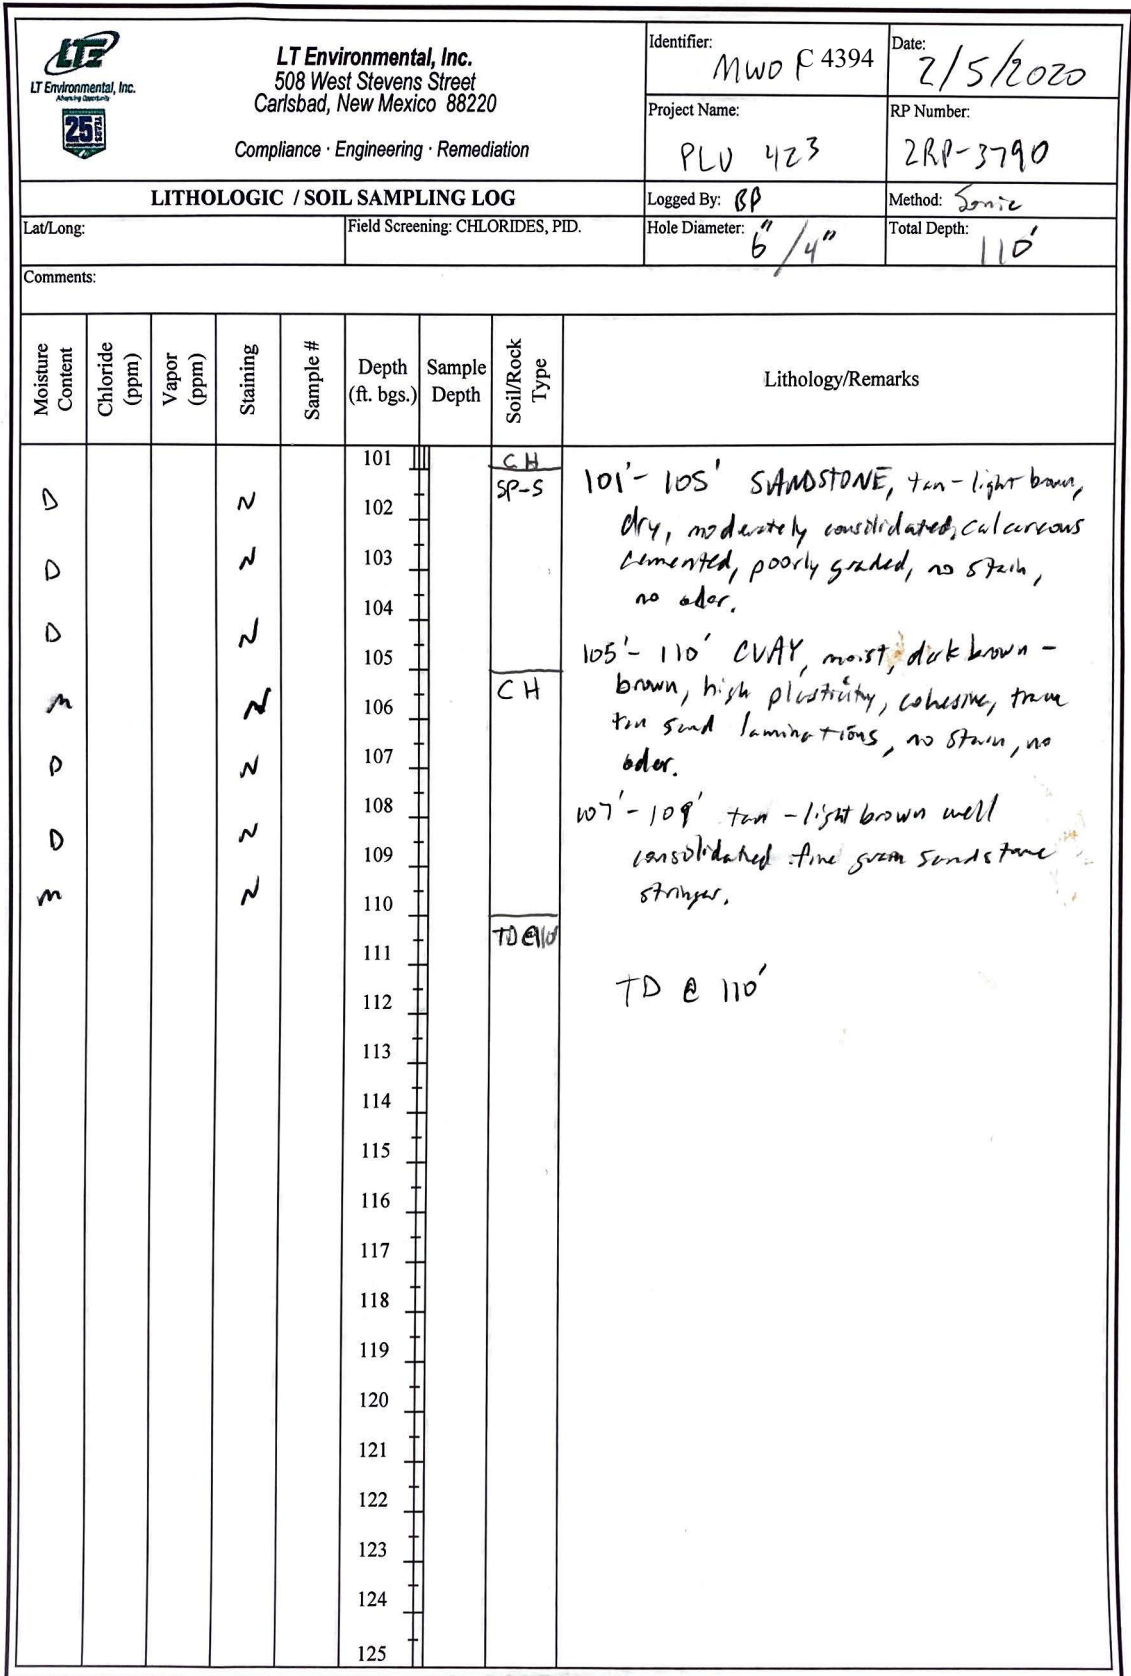 LTE
LT Environmental, Inc.
Advancing Opportunity
25 YEARS
LT Environmental, Inc.
508 West Stevens Street
Carlsbad, New Mexico 88220
Compliance · Engineering · Remediation
Identifier:
C 4394
Date:
2/5/2020
Project Name:
PLU 423
RP Number:
2RP-3790
LITHOLOGIC / SOIL SAMPLING LOG
Logged By: BP
Method: Sonic
Lat/Long:
Field Screening: CHLORIDES, PID.
Hole Diameter: 6" / 4"
Total Depth: 110'
Comments:
Moisture Content
Chloride (ppm)
Vapor (ppm)
Staining
Sample #
Depth (ft. bgs.)
Sample Depth
Soil/Rock Type
Lithology/Remarks
101 CH
D N 102 SP-S 101'- 105' SANDSTONE, tan-light brown,
dry, moderately consolidated, calcareous
D N 103 cemented, poorly graded, no stain,
104 no odor.
D N 105 105'- 110' CLAY, moist, dark brown -
m N 106 CH brown, high plasticity, cohesive, trace
tan sand laminations, no stain, no
D N 107 odor.
108 107'- 109' tan - light brown well
D N 109 consolidated fine grain sandstone
m N 110 stringer.
111 TD @ 110'
112 TD @ 110'
113
114
115
116
117
118
119
120
121
122
123
124
125